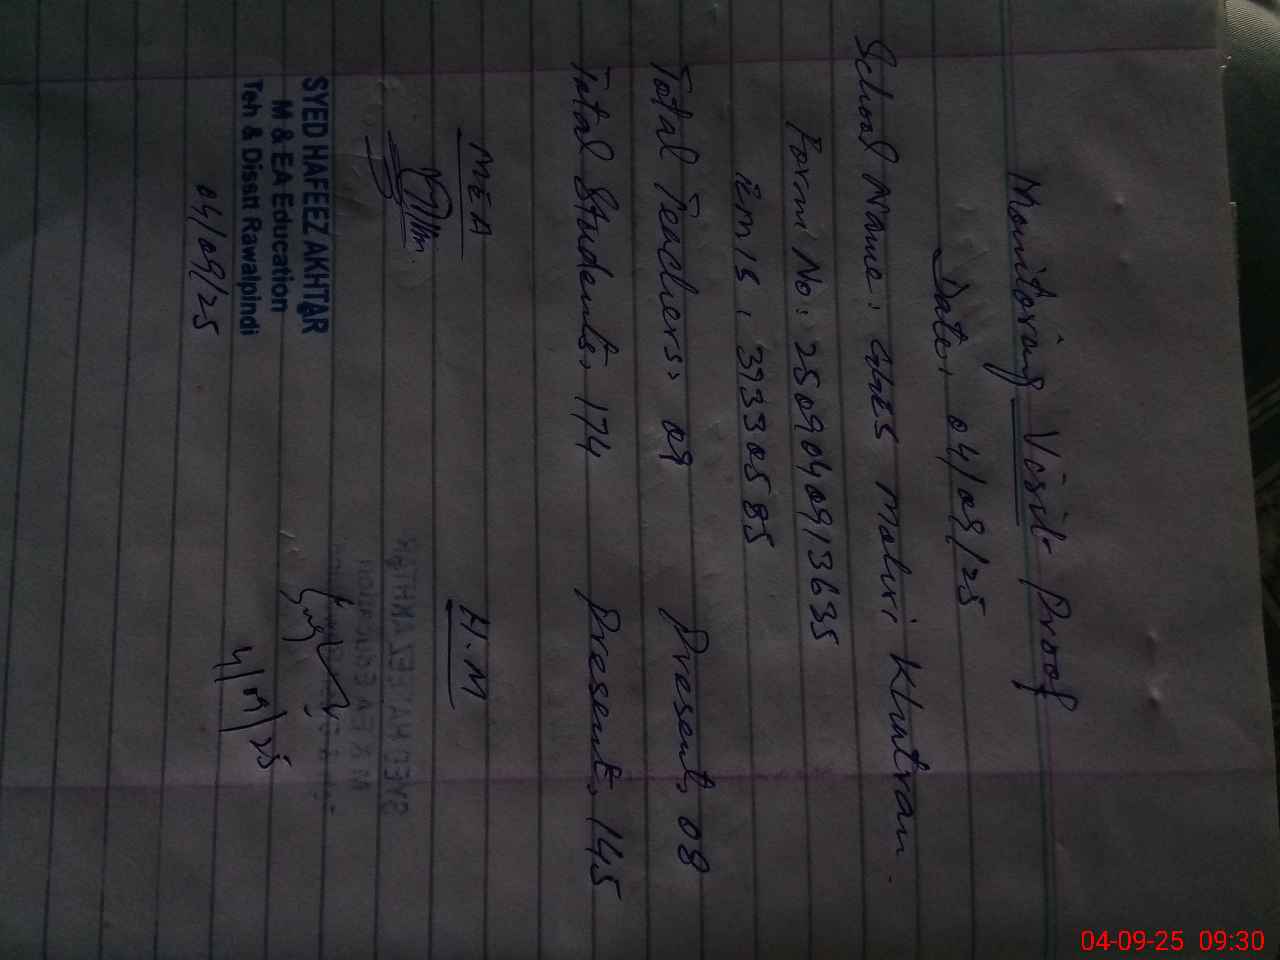 Monitoring Visit Proof
Date: 04/09/25
School Name: GHS Mohri Khatran.
Form No: 2509040913635
EMIS: 37330585
Total Teachers: 09 Present: 08
Total Students: 174 Present: 145
MEA H.M
SYED HAFEEZ AKHTAR
M & EA Education
Teh & Disstt Rawalpindi
04/09/25
4/9/25
04-09-25 09:30